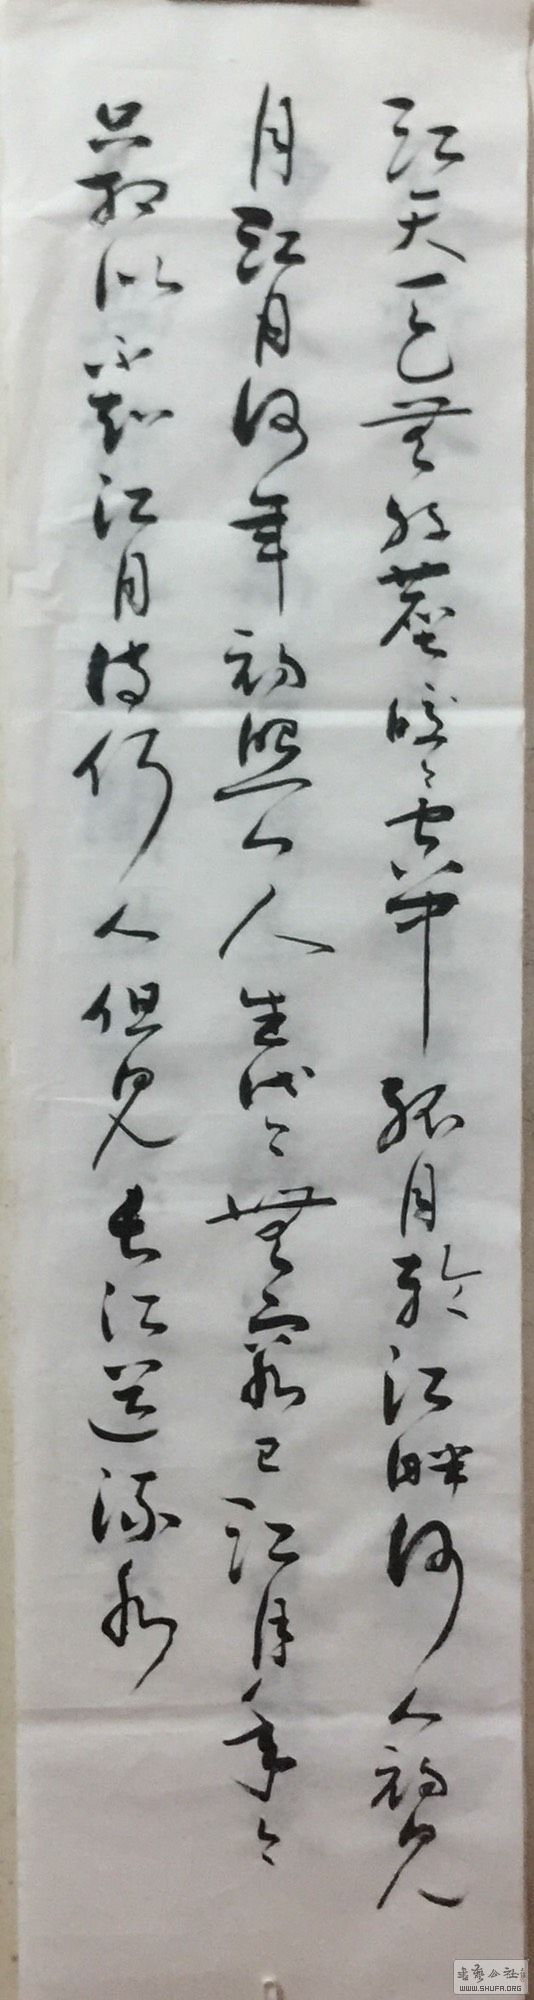 江天一色無纤塵皎々空中孤月於江畔何人初見
月江月何年初照人人生代々無窮已江月年々
只相似不知江月待何人但見長江送流水
書藝公社
WWW.SHUFA.ORG